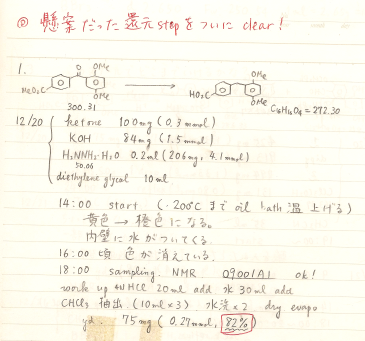 ◎ 懸案だった還元stepをついにclear!
1.
O OMe
MeO₂C OMe
300.31
OMe
HO₂C OMe
C₁₆H₁₆O₄ = 272.30
12/20 ketone 100mg (0.3 mmol)
KOH 84mg (1.5 mmol)
H₂NNH₂·H₂O 0.2ml (206mg, 4.1mmol)
50.06
diethylene glycol 10ml
14:00 start (~200℃ まで oil bath 温 上げる)
黄色 → 橙色になる。
内壁に水がついてくる。
16:00 頃 色が消えている。
18:00 sampling NMR 09001A1 ok!
work up 4N HCl 20ml add 水 30ml add
CHCl₃ 抽出 (10ml×3) 水洗×2 dry evapo
yd. 75mg (0.27mmol, 82%)